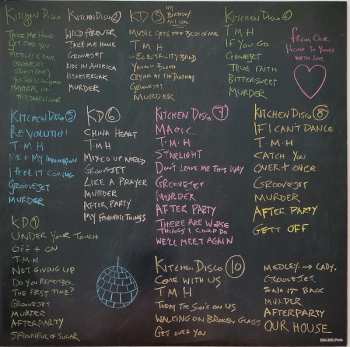 Kitchen Disco
Take Me Home
Murder
Kitchen Disco 2
Wild Forever
Take Me Home
Groovejet
Kids in America
Heartbreak
Murder
KD 3 My Birthday
Music Gets the Best of Me
T M H
Crying at the Disco
Groovejet
Murder
Kitchen Disco 4
T M H
If You Go
Groovejet
True Faith
Bittersweet
Murder
From Our
Home to Yours
With Love
Kitchen Disco 5
Revolution
T M H
Me + My Imagination
I Feel It Coming
Groovejet
Murder
KD 6
China Heart
T M H
Mixed Up World
Groovejet
Like A Prayer
Murder
After Party
My Favourite Things
Kitchen Disco 7
Magic
T M H
Starlight
Don't Leave Me This Way
Groovejet
Murder
After Party
There Are Worse
Things I Could Do
We'll Meet Again
Kitchen Disco 8
If I Cant Dance
T M H
Catch You
Over + Over
Groovejet
Murder
After Party
Get Off
KD 9
Under Your Touch
Off + On
T M H
Not Giving Up
Do You Remember
The First Time?
Groovejet
Murder
Afterparty
Spoonful of Sugar
Kitchen Disco 10
Come With Us
T M H
Today The Sun's On Us
Walking on Broken Glass
Get Over You
Medley → Lady,
Groovejet
Sing It Back
Murder
Afterparty
Our House